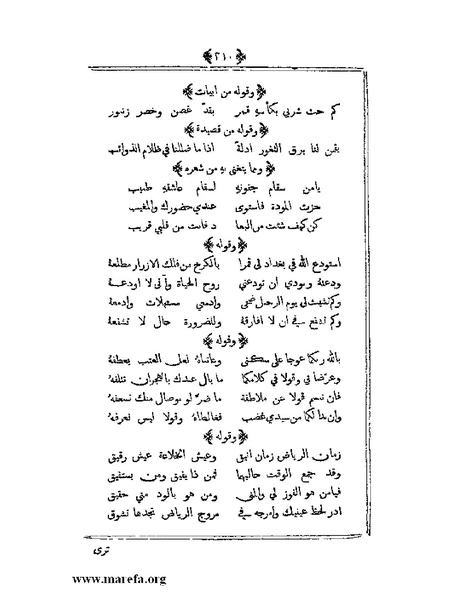 ﴿ ٣١٠ ﴾
﴿ وقوله من ابيات ﴾
كم حث شربي بكأسه قمر بقدّ غصن وخصر زنبور
﴿ وقوله من قصيدة ﴾
بقين لنا برق الثغور ادلة اذا ما ضللنا في ظلام الذوائب
﴿ ومما يتغنى به من شعره ﴾
يامن سقام جفونه لسقام عاشقه طبيب
حزت المودة فاستوى عندي حضورك والمغيب
كن كيف شئت من البعا د فانت من قلبي قريب
﴿ وقوله ﴾
استودع الله في بغداد لي قمرا بالكرخ من فلك الازرار مطلعه
ودعته وبودي ان تودعني روح الحياة وأني لا اودعه
وكم تشبث لي يوم الرحيل ضحى وادمعي مستهلات وادمعه
وكم تشفع في ان لا افارقه وللضرورة حال لا تشفعه
﴿ وقوله ﴾
بالله ربكما عوجا على سكني وعاتباه لعل العتب يعطفه
وعرّضا بي وقولا في كلامكما ما بال عبدك بالهجران تتلفه
فان تبسم قولا عن ملاطفة ما ضرّ لو بوصال منك تسعفه
وان بدا لكما من سيدي غضب فغالطاه وقولا ليس نعرفه
﴿ وقوله ﴾
زمان الرياض زمان انيق وعيش الخلاعة عيش رقيق
وقد جمع الوقت حاليهما فمن ذا يفيق ومن يستفيق
فيامن هو الفوز لي والمنى ومن هو بالود مني حقيق
ادر لحظ عينيك وامرجه في مروج الرياض تجدها تشوق
ترى
www.marefa.org